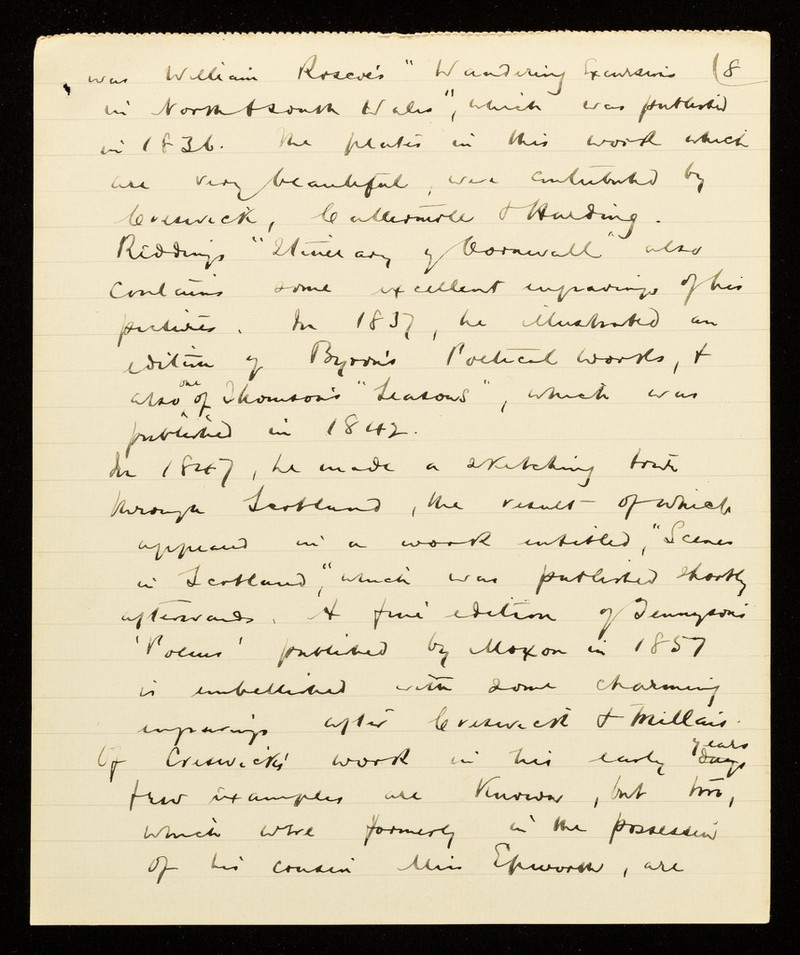 was William Roscoe's "Wandering Excursions (8
in North & South Wales", which was published
in 1836. The plates in this work which
are very beautiful, were contributed by
Creswick, Cattermole & Harding.
Reddings "Itinerary of Cornwall" also
contains some excellent engravings of his
pictures. In 1837, he illustrated an
edition of Byron's Poetical Works, &
also one of Thomson's "Seasons", which was
published in 1842.
In 1847, he made a sketching tour
through Scotland, the result of which
appeared in a work entitled, "Scenes
in Scotland", which was published shortly
afterwards. A fine edition of Tennyson's
'Poems' published by Moxon in 1857
is embellished with some charming
engravings after Creswick & Millais.
Of Creswick's work in his early years
few examples are known, but two,
which were formerly in the possession
of his cousin Miss Epworth, are